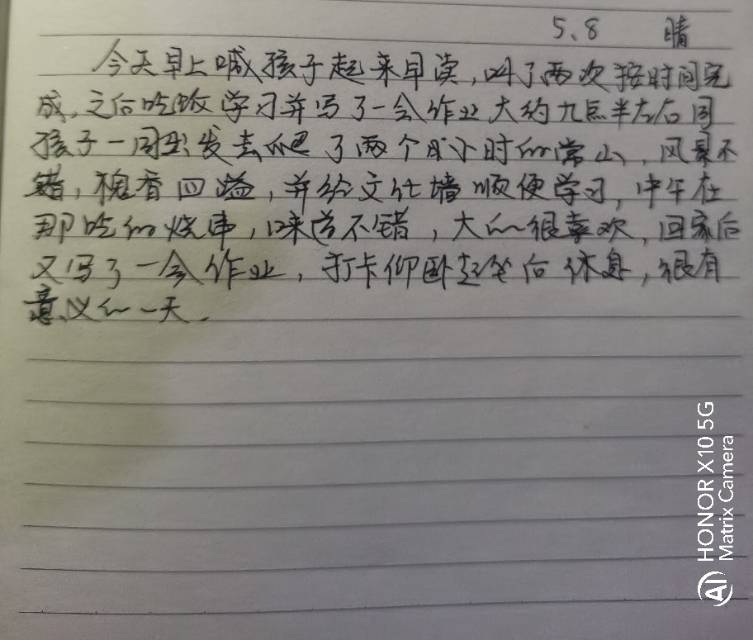 5.8 晴
今天早上喊孩子起来早读，叫了两次按时间完
成，之后吃饭学习并写了一会作业大约九点半左右同
孩子一同出发去爬了两个多小时的常山，风景不
错，槐香四溢，并给文化墙顺便学习，中午在
那吃的烧串，味道不错，大的很喜欢，回家后
又写了一会作业，打卡仰卧起坐后休息，很有
意义的一天.
HONOR X10 5G
Matrix Camera
AI